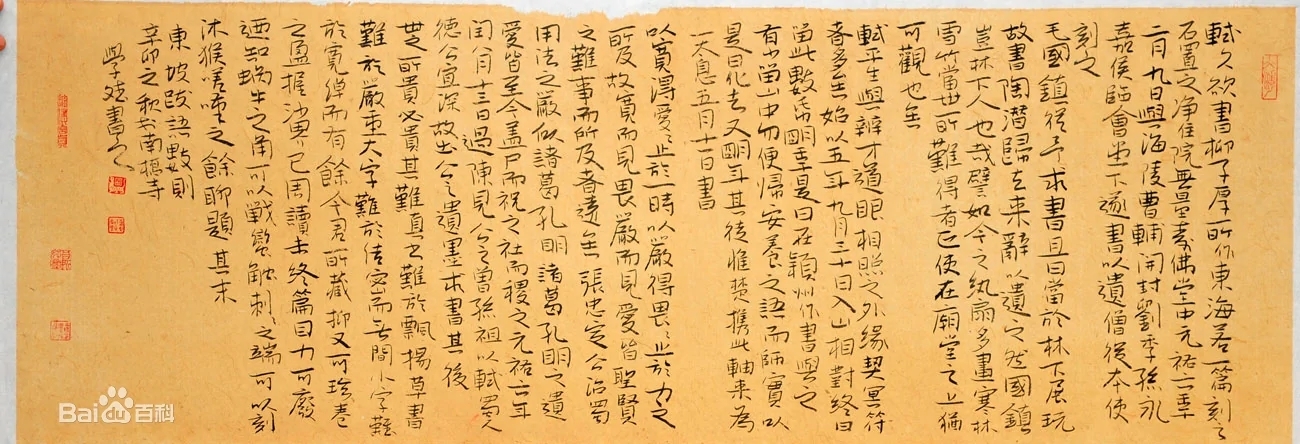 軾久欲書柳子厚所作東海若一篇刻之
石置之淨住院無量壽佛堂中元祐六年
二月九日與海陵曹輔開封劉季孫永
嘉侯臨會堂下遂書以遺僧從本使
刻之
毛國鎮從予求書且曰當於林下展玩
故書陶潛歸去來辭以遺之然國鎮
豈林下人也哉譬如今之紈扇多畫寒林
雪竹當世所難得者正使在廟堂之上猶
可觀也矣
軾平生與辯才道眼相照之外緣契冥符
者多矣始以五年九月三十日入山相對終日
留此數紙明年是日在潁州作書與之
有少留山中勿便歸安養之語而師實以
是日化去又明年其徒惟楚攜此軸來為
一太息五月十一日書
以寬得愛々止於一時以嚴得畏々止於力之
所及故寬而見畏嚴而見愛皆聖賢
之難事而所及者遠矣張忠定公治蜀
用法之嚴似諸葛孔明諸葛孔明之遺
愛皆至今蓋尸而祝之社而稷之元祐六年
閏八月十三日過陳見公之曾孫祖以軾蜀人
德公宜深故出公之遺墨求書其後
世之所貴必貴其難真書難於飄揚草書
難於嚴重大字難於結密而無間小字難
於寬綽而有餘今君所藏抑又可珍卷
之盈握沙界已周讀未終篇目力可廢
迺知蝸牛之角可以戰蠻觸棘刺之端可以刻
沐猴嗟嘆之餘聊題其末
東坡跋語數則
辛卯之秋於南棲寺
學 書
Bai 百科